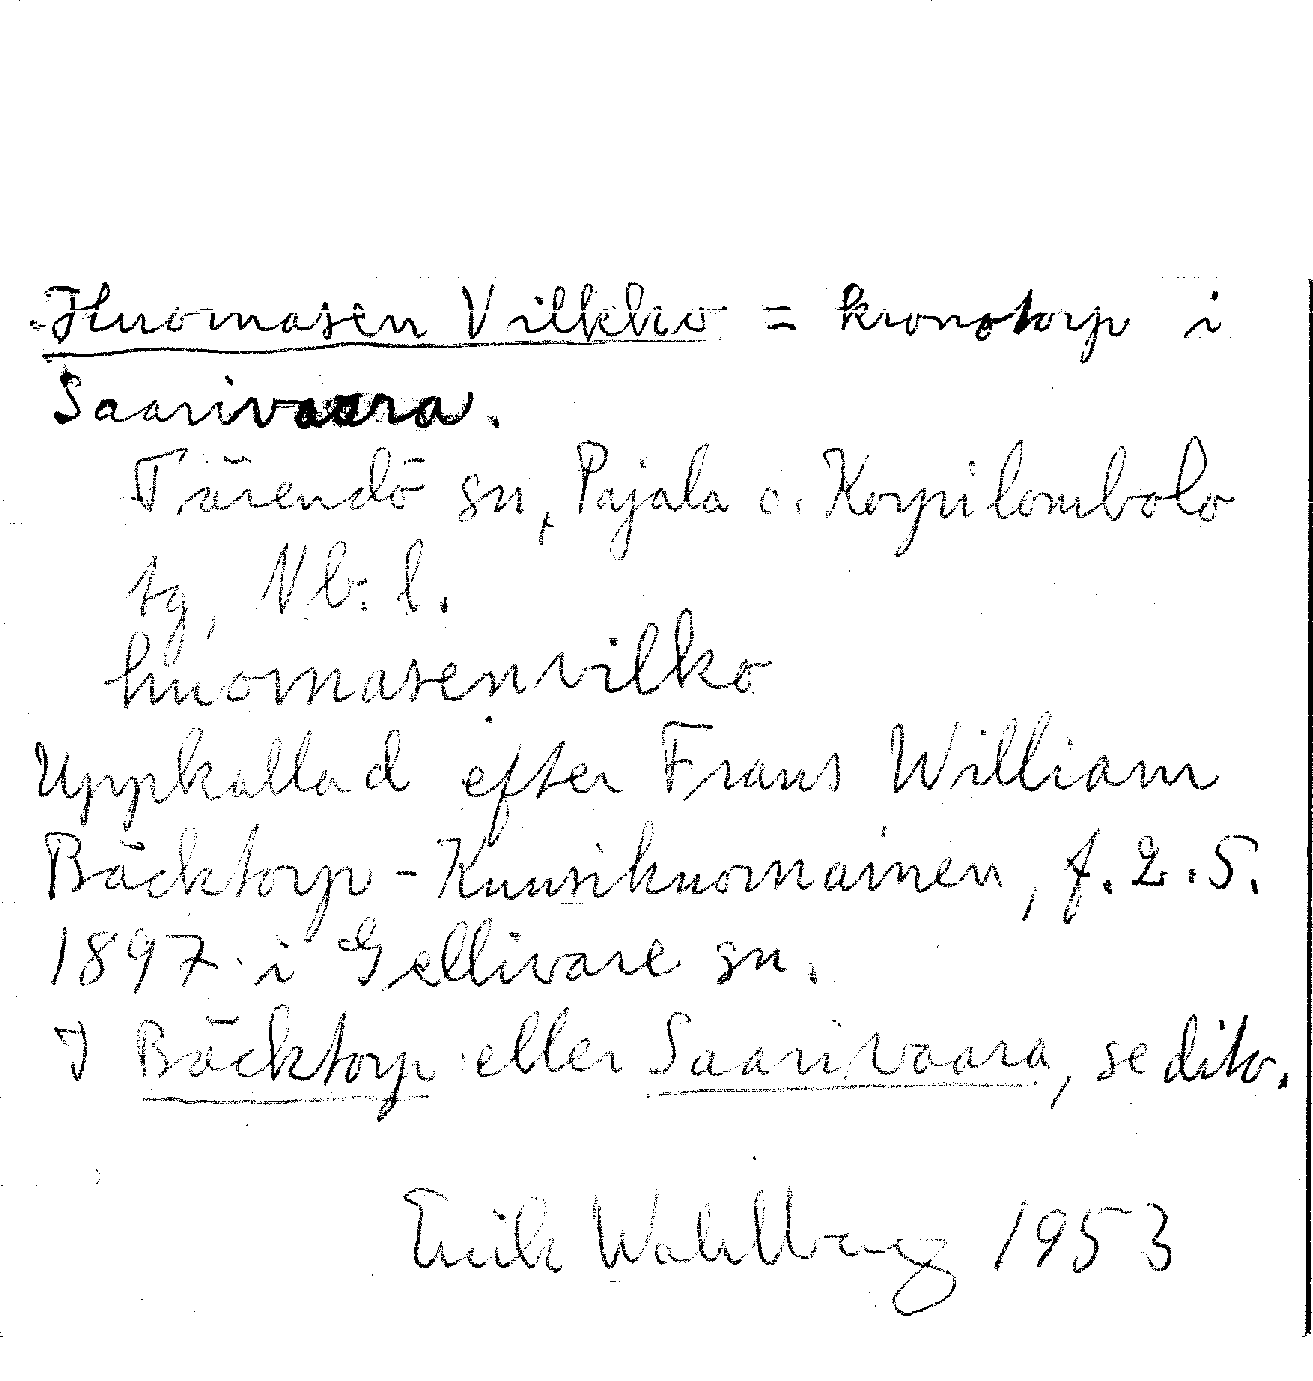 Huomasen Vilkko = kronotorp i
Saarivaara.
Tärendö sn, Pajala o. Korpilombolo
tg, Nb. l.
huomasenvilko
Uppkallad efter Frans William
Bäcktorp-Kuusihuomainen, f. 2.5.
1897 i Gellivare sn.
I Bäcktorp eller Saarivaara, se dito.
Erik Wahlberg 1953